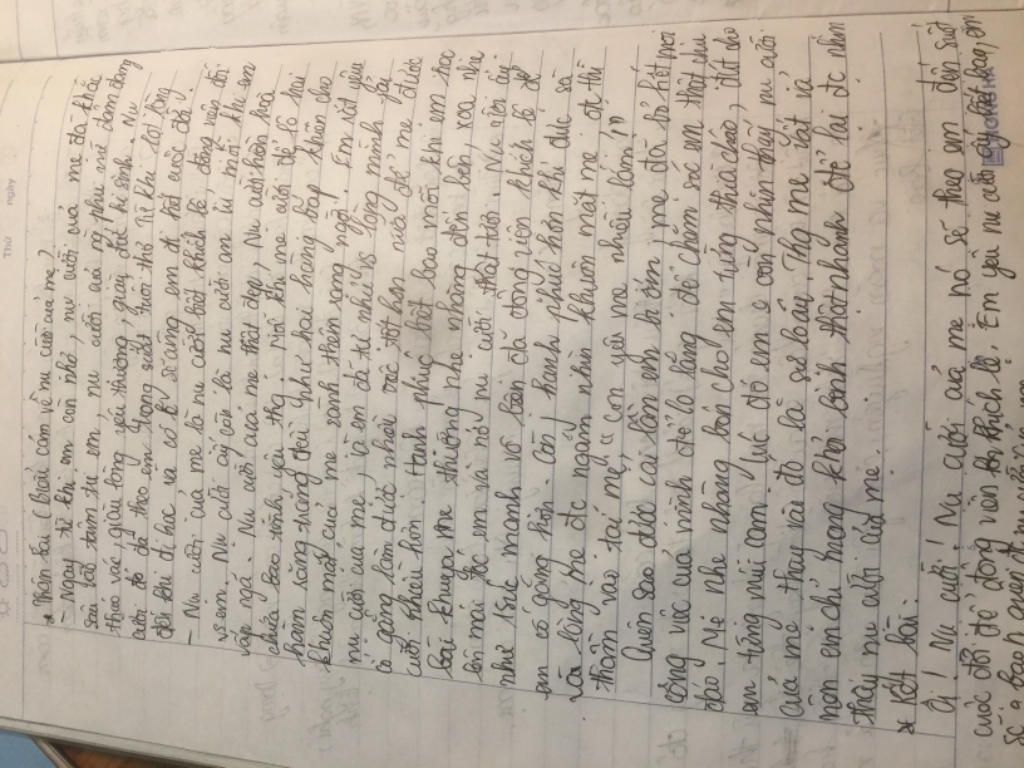 * Thân bài (biểu cảm về nụ cười của mẹ)
- Ngay từ khi em còn nhỏ, nụ cười của mẹ đã khắc
sâu vào tâm trí em, nụ cười của người phụ nữ đảm đang
tháo vát, giàu lòng yêu thương, giàu đức hi sinh. Nụ
cười đó đã theo em trong suốt tuổi thơ từ khi lọt lòng
đến khi đi học và có lẽ sẽ cùng em đi hết cuộc đời.
- Nụ cười của mẹ là nụ cười khích lệ, động viên đối
với em. Nụ cười ấy còn là nụ cười an ủi mỗi khi em
vấp ngã. Nụ cười của mẹ thật đẹp, nụ cười hiền hoà
chứa bao tình yêu thg mỗi khi mẹ cười để lộ hai
hàm răng trắng đều như hai hàng bắp khiến cho
khuôn mặt của mẹ rạnh thêm rạng ngời. Em rất yêu
nụ cười của mẹ, là em đã tự nhủ vs lòng mình phải
cố gắng làm được, phải tốt hơn nữa để mẹ được
cười nhiều hơn. Hạnh phúc biết bao mỗi khi em học
bài khuya mẹ thường nhẹ nhàng đến bên, xoa nhẹ
lên mái tóc em và nở nụ cười thật tươi. Nụ cười ấy
như 1 sức mạnh vô hình đã động viên khích lệ để
em cố gắng hơn. Còn j hạnh phúc hơn khi đc sà
vào lòng mẹ đc ngắm nhìn khuôn mặt mẹ, đc thì
thầm vào tai mẹ "con yêu mẹ nhiều lắm!"
Quên sao được cái lần em bị ốm, mẹ đã bỏ hết mọi
công việc của mình để lo lắng để chăm sóc em thật chu
đáo. Mẹ nhẹ nhàng bón cho em từng thìa cháo, đút cho
em từng múi cam. Lúc đó em k còn nhìn thấy nụ cười
của mẹ thay vào đó là sự lo lắng. Thg mẹ thật và
nên em chỉ mong khỏi bệnh thật nhanh để lại đc nhìn
thấy nụ cười của mẹ.
* Kết bài.
Ôi! Nụ cười! Nụ cười của mẹ nó sẽ theo em đến suốt
cuộc đời để động viên khích lệ. Em yêu nụ cười ấy biết bao, em